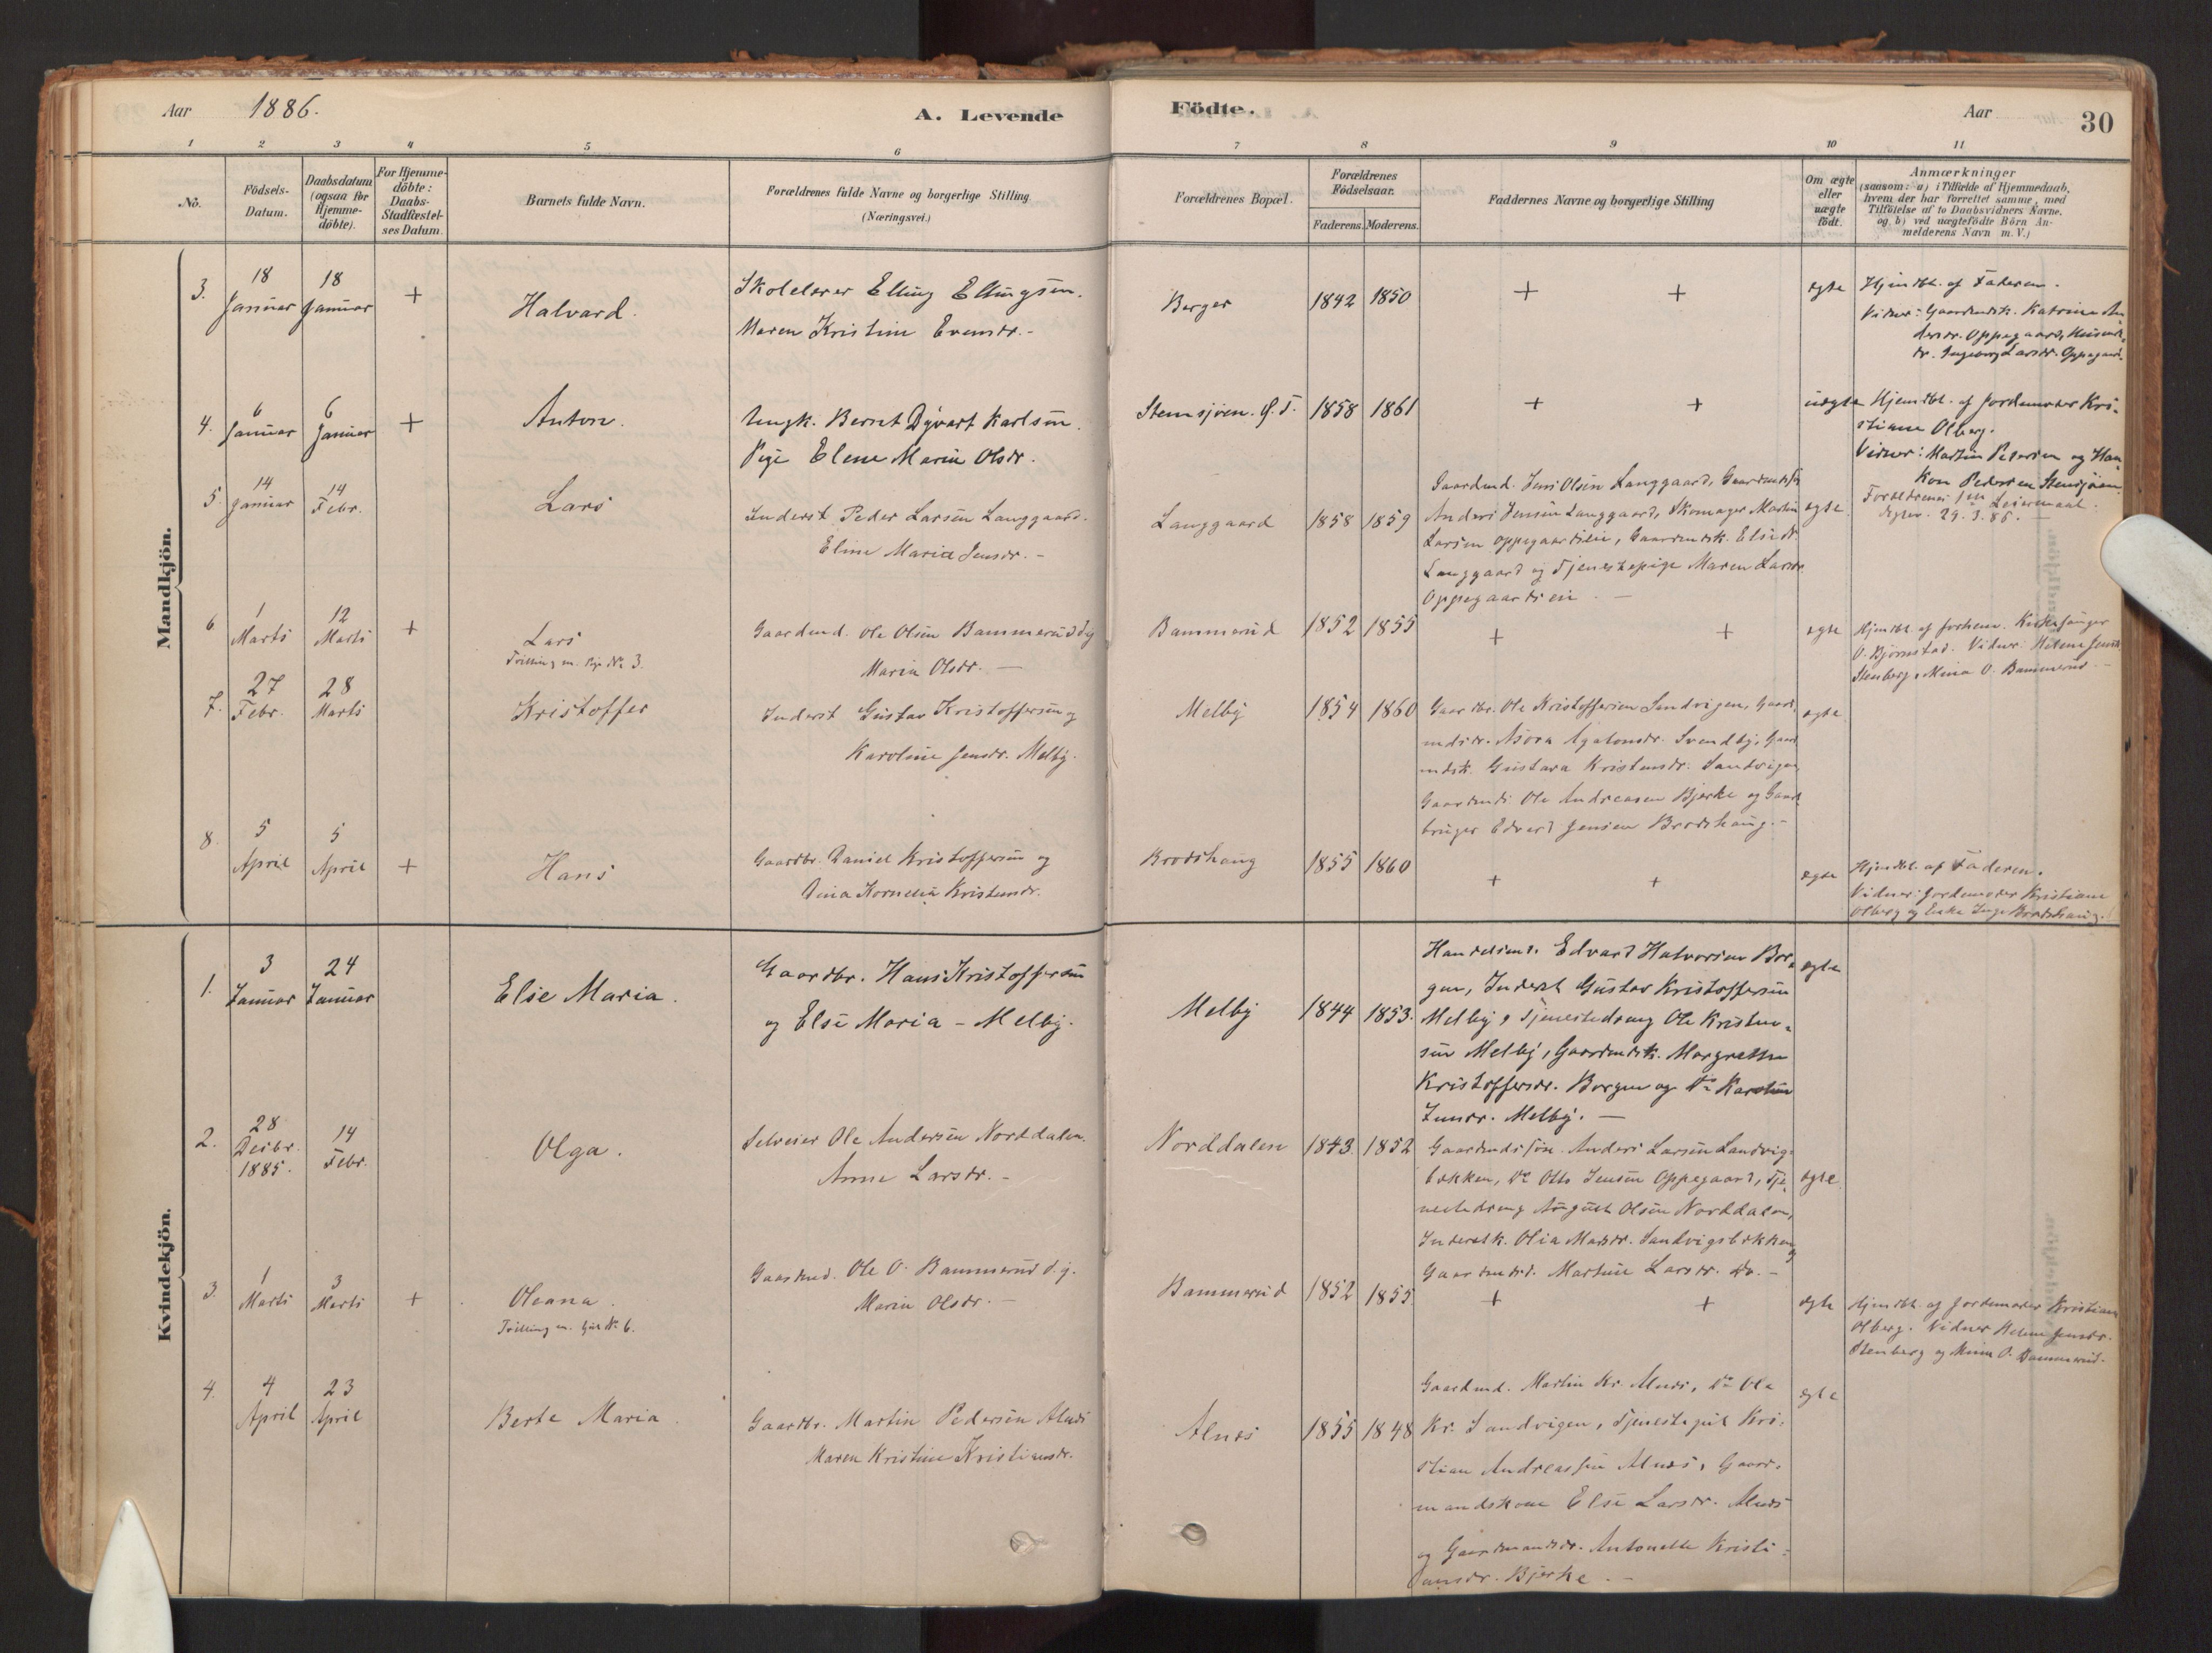 Aar 1886.
A. Levende
Födte.
Aar
30
1 2 3 4 5 6 7 8 9 10 11
No.
Födsels-
Datum.
Daabsdatum
(ogsaa for
Hjemme-
döbte).
For Hjemme-
döbte:
Daabs-
Stadfæstel-
ses Datum.
Barnets fulde Navn.
Forældrenes fulde Navne og borgerlige Stilling
(Næringsvei.)
Forældrenes Bopæl.
Forældrenes
Födselsaar.
Faderens. Moderens.
Faddernes Navne og borgerlige Stilling
Om ægte
eller
uægte
födt.
Anmærkninger
(saasom: a) i Tilfælde af Hjemmedaab,
hvem der har forrettet samme, med
Tilföielse af to Daabsvidners Navne.
og b) ved uægtefödte Börn An-
melderens Navn m. V.)
Mandkjön.
3.
18
Januar
18
Januar
+
Halvard.
Skolelærer Elling Ellingsen.
Maren Kristine Evensdr. -
Berger
1842 1850
+ +
ægte
Hjemdbt. af Faderen.
Vidner: Gaardmdsk. Katrine An
dersdr. Oppegaard, Husmds
dr. Ingeborg Larsdr. Oppegaard.
4.
6
Januar
6
Januar
+
Anton.
Ungk. Bernt Dyvart Karlsen.
Pige Elene Marie Olsdr.
Stensjøen. Ø. T.
1858 1861
+ +
uægte
Hjemdbt. af Jordemoder Kri-
stiane Olberg.
Vidner: Martin Petersen og Haa-
kon Pedersen Stensjøen.
Forældrenes 1ste Leiermaal.
29. 3. 86. -
5.
14
Januar
14
Febr.
Lars
Inderst Peder Larsen Langgaard.
Eline Marie Jensdr. -
Langgaard
1858 1859
Gaardmd. Jens Olsen Langgaard, Gaardmdssøn
Anders Jensen Langgaard, Skomager Martin
Larsen Oppegaardseie, Gaardmdsk. Elise
Langgaard og Tjenestepige Maren Larsdr.
Oppegaardseie. -
ægte
6
1
Marts
12
Marts
+
Lars
Tvilling m. Pige No 3.
Gaardmd. Ole Olsen Bammerud og
Maria Olsdr. -
Bammerud
1852 1855
+ +
ægte
Hjemdbt. af forhenv. Kirkesanger
O. Bjørnstad. Vidner: Helene Jensdr.
Stenberg, Mina O. Bammerud -
7.
27
Febr.
28
Marts
Kristoffer
Inderst Gustav Kristoffersen og
Karoline Jensdr. Melby.
Melby
1854 1860
Gaardbr. Ole Kristoffersen Sandvigen, Gaard-
mdsdr. Agatonsdr. Svendby, Gaard
mdsk. Gustava Kristensdr. Sandvigen,
Gaardmds. Ole Andreasen Bjerke og Gaard
bruger Edvard Jensen Brodshaug. -
ægte
8.
5
April
5
April
+
Hans
Gaardbr. Daniel Kristoffersen og
Dina Kornelia Kristensdr.
Brodshaug
1855 1860
+ +
ægte
Hjemdbt. af Faderen.
Vidner: Jordemoder Kristiane
Olberg og Enke Inge Brodshaug.
Kvindekjön.
1.
3
Januar
24
Januar
Else Maria.
Gaardbr. Hans Kristoffersen
og Else Maria - Melby.
Melby
1844 1853.
Handelsmd. Edvard Halvorsen Bor-
gen, Inderst Gustav Kristoffersen
Melby, Tjenestedreng Ole Kristen-
sen Melby, Gaardmdsk. Margrethe
Kristoffersdr. Borgen og Do Karoline
Jensdr. Melby. -
ægte
2.
28
Decbr.
1885.
14
Febr.
Olga.
Selveier Ole Andersen Norddalen.
Anne Larsdr. -
Norddalen
1843. 1852
Gaardmdssøn Anders Larsen Sandvigs-
bækken, Do Otto Jensen Oppegaard, Tje-
nestedreng August Olsen Norddalen,
Inderstk. Olia Madsdr. Sandvigsbækken og
Gaardmdsd. Martine Larsdr. do. -
ægte
3.
1
Marts
3
Marts
+
Oleana.
Tvilling m. Gut No 6.
Gaardmd. Ole O. Bammerud og
Maria Olsdr. -
Bammerud
1852 1855
+ +
ægte
Hjemdbt. af Jordemoder Kristiane
Olberg. Vidner Helene Jensdr.
Stenberg og Mina O. Bammerud.
4.
4
April
23
April
Berte Maria.
Gaardbr. Martin Pedersen Alnæs
Maren Kristine Kristiansdr.
Alnæs
1855 1848
Gaardmd. Martin Kr. Alnæs, Do Ole
Kr. Sandvigen, Tjenestegut Kri-
stian Andreassen Alnæs, Gaard-
mandskone Else Larsdr. Alnæs
og Gaardmandsdr. Antonette Kristi-
ansdr. Bjerke. -
ægte